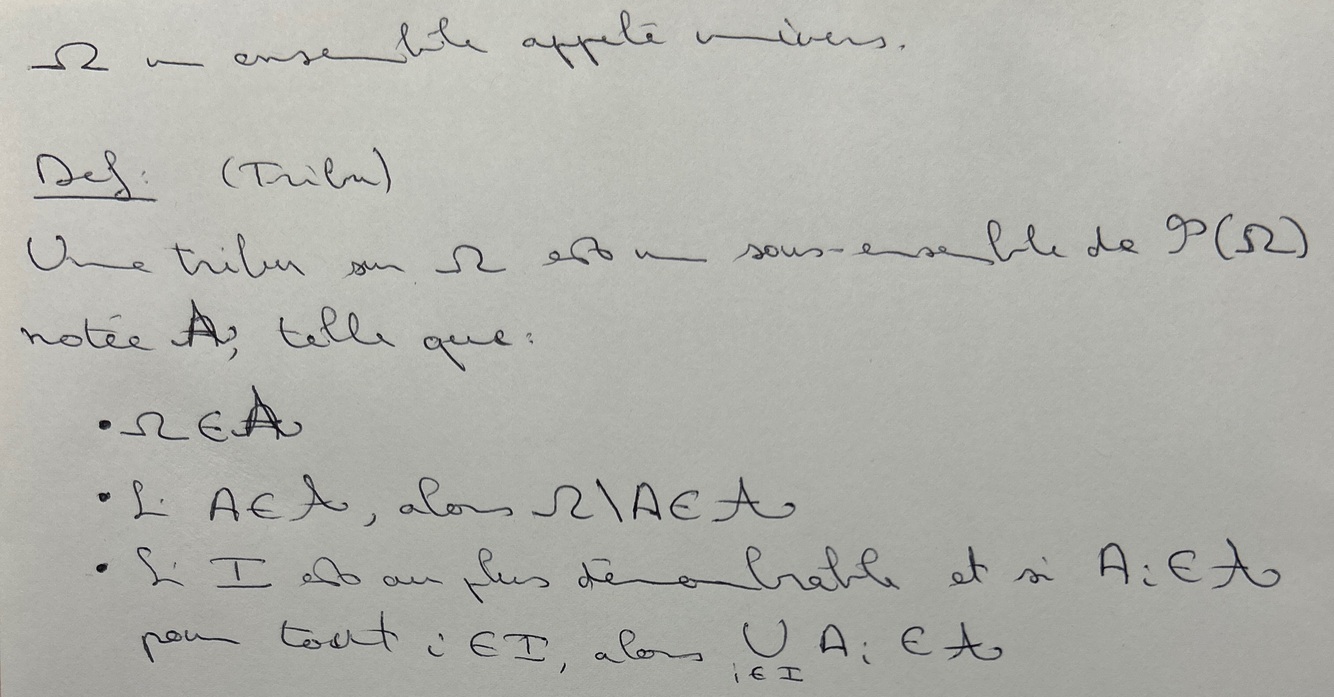 Ω un ensemble appelé univers.
Def: (Tribu)
Une tribu sur Ω est un sous-ensemble de 𝒫(Ω)
notée 𝒜, telle que:
• Ω ∈ 𝒜
• Si A ∈ 𝒜, alors Ω\A ∈ 𝒜
• Si I est au plus dénombrable et si Ai ∈ 𝒜
pour tout i ∈ I, alors ⋃_{i ∈ I} Ai ∈ 𝒜